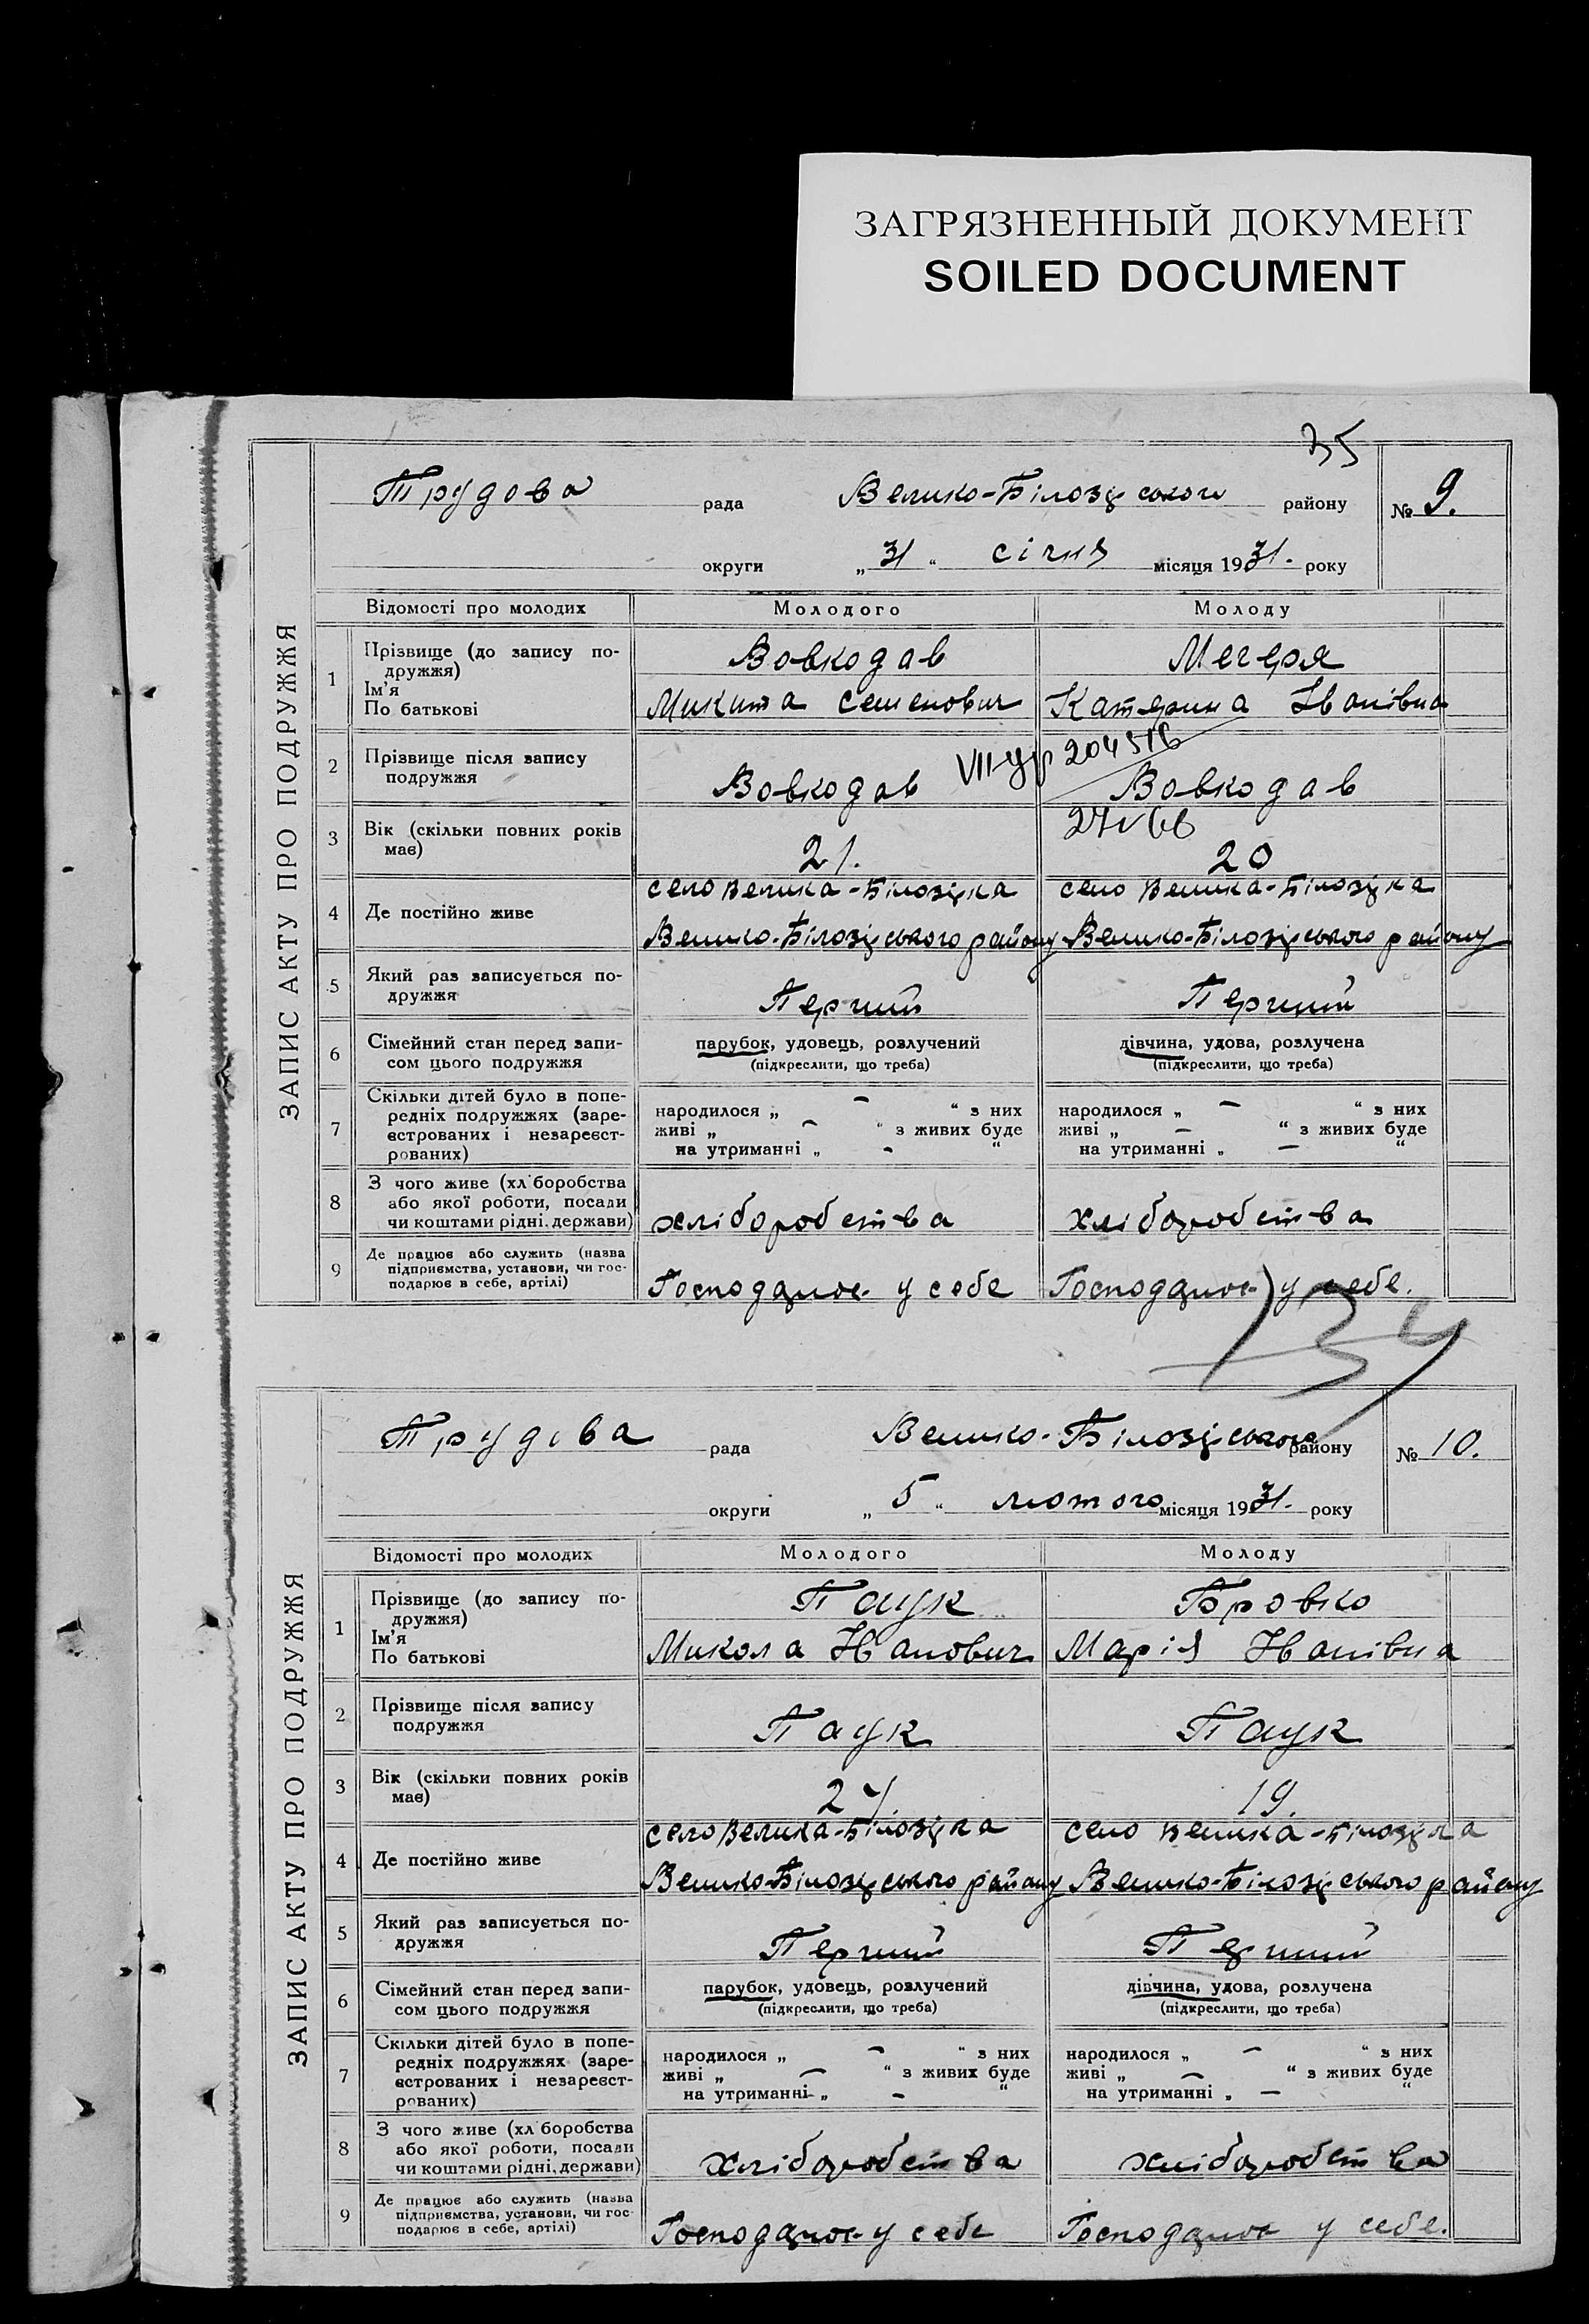 ЗАГРЯЗНЕННЫЙ ДОКУМЕНТ
SOILED DOCUMENT
35
ЗАПИС АКТУ ПРО ПОДРУЖЖЯ
Трудова рада Велико-Білозірського району № 9.
округи „31“ січня місяця 1931. року
Відомості про молодих Молодого Молоду
1 Прізвище (до запису по- Вовкодав Мегеря
дружжя)
Ім’я
По батькові Микита Семенович Катерина Іванівна
VII-УР 204516
2 Прізвище після запису
подружжя Вовкодав Вовкодав
27 V 66
3 Вік (скільки повних років
має) 21. 20
село Велика-Білозірка село Велика-Білозірка
4 Де постійно живе
Велико-Білозірського району Велико-Білозірського району
5 Який раз записується по-
дружжя Перший Перший
6 Сімейний стан перед запи- парубок, удовець, розлучений дівчина, удова, розлучена
сом цього подружжя (підкреслити, що треба) (підкреслити, що треба)
7 Скільки дітей було в попе-
редніх подружжях (заре- народилося „ – “ з них народилося „ – “ з них
єстрованих і незареєст- живі „ – “ з живих буде живі „ – “ з живих буде
рованих) на утриманні „ – “ на утриманні „ – “
8 З чого живе (хл боробства
або якої роботи, посади
чи коштами рідні, держави) хліборобства хліборобства
9 Де працює або служить (назва
підприємства, установи, чи гос-
подарює в себе, артілі) Господарює у себе Господарює у себе.
34
ЗАПИС АКТУ ПРО ПОДРУЖЖЯ
Трудова рада Велико-Білозірського району № 10.
округи „5“ лютого місяця 1931. року
Відомості про молодих Молодого Молоду
1 Прізвище (до запису по- Паук Бровко
дружжя)
Ім’я
По батькові Микола Іванович Марія Іванівна
2 Прізвище після запису
подружжя Паук Паук
3 Вік (скільки повних років
має) 27. 19.
село Велика-Білозірка село Велика-Білозірка
4 Де постійно живе
Велико-Білозірського району Велико-Білозірського району
5 Який раз записується по-
дружжя Перший Перший
6 Сімейний стан перед запи- парубок, удовець, розлучений дівчина, удова, розлучена
сом цього подружжя (підкреслити, що треба) (підкреслити, що треба)
7 Скільки дітей було в попе-
редніх подружжях (заре- народилося „ – “ з них народилося „ – “ з них
єстрованих і незареєст- живі „ – “ з живих буде живі „ – “ з живих буде
рованих) на утриманні „ – “ на утриманні „ – “
8 З чого живе (хл боробства
або якої роботи, посади
чи коштами рідні, держави) хліборобства хліборобства
9 Де працює або служить (назва
підприємства, установи, чи гос-
подарює в себе, артілі) Господарює у себе Господарює у себе.